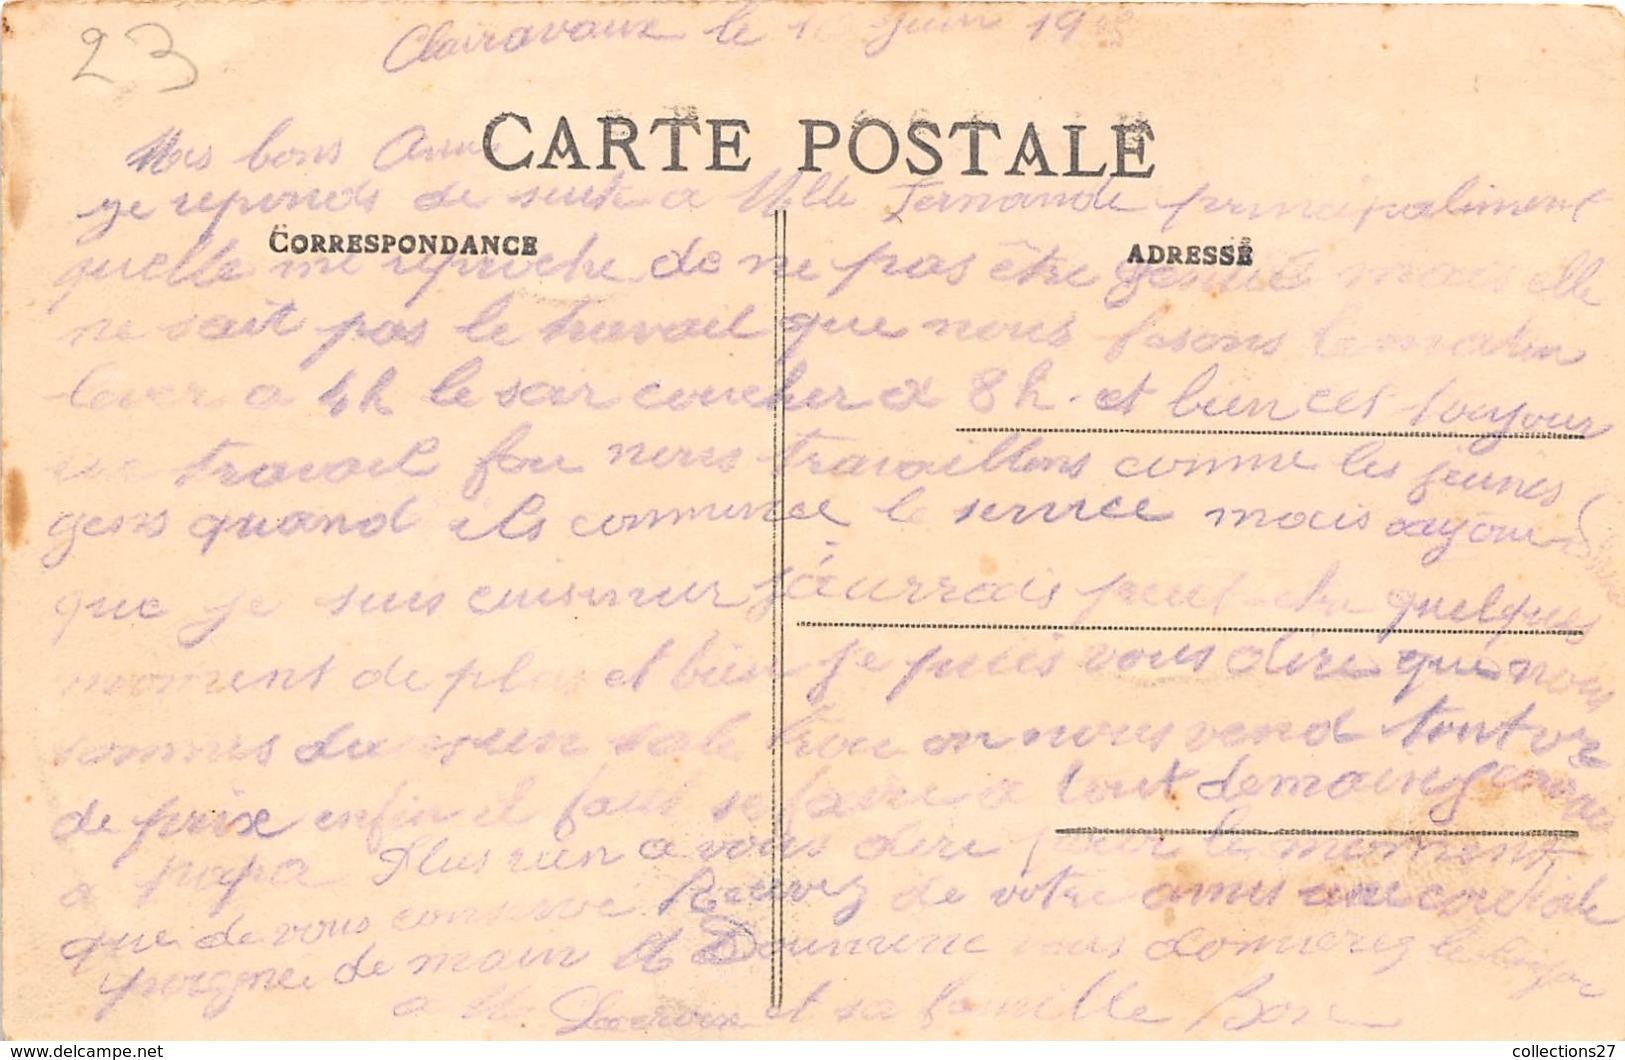 23
Clairavaux le Juin 19
CARTE POSTALE
Mes bons Amis
je reponds de suite a Mlle Fernande principaliment
CORRESPONDANCE
ADRESSE
quelle me reproche de ne pas être mais elle
ne sait pas le travail que nous fesons le matin
lever a 4h le soir coucher a 8h. et bien cet toujour
un travail fou nous travaillons comme les jeunes
gens quand ils commence le service mais
que je suis cuisinier j'aurrais peut-etre quelques
moment de plus et bien je puis vous dire que nous
sommes dans un sale trou on nous vend tout
de prix enfin il faut se faire a tout
a papa Plus rien a vous dire pour le moment
que de vous conserve Recevez de votre amis une cordiale
poigne de main M Doumenc vous donnerez le
a M Lacroix et sa famille Bon
collections27